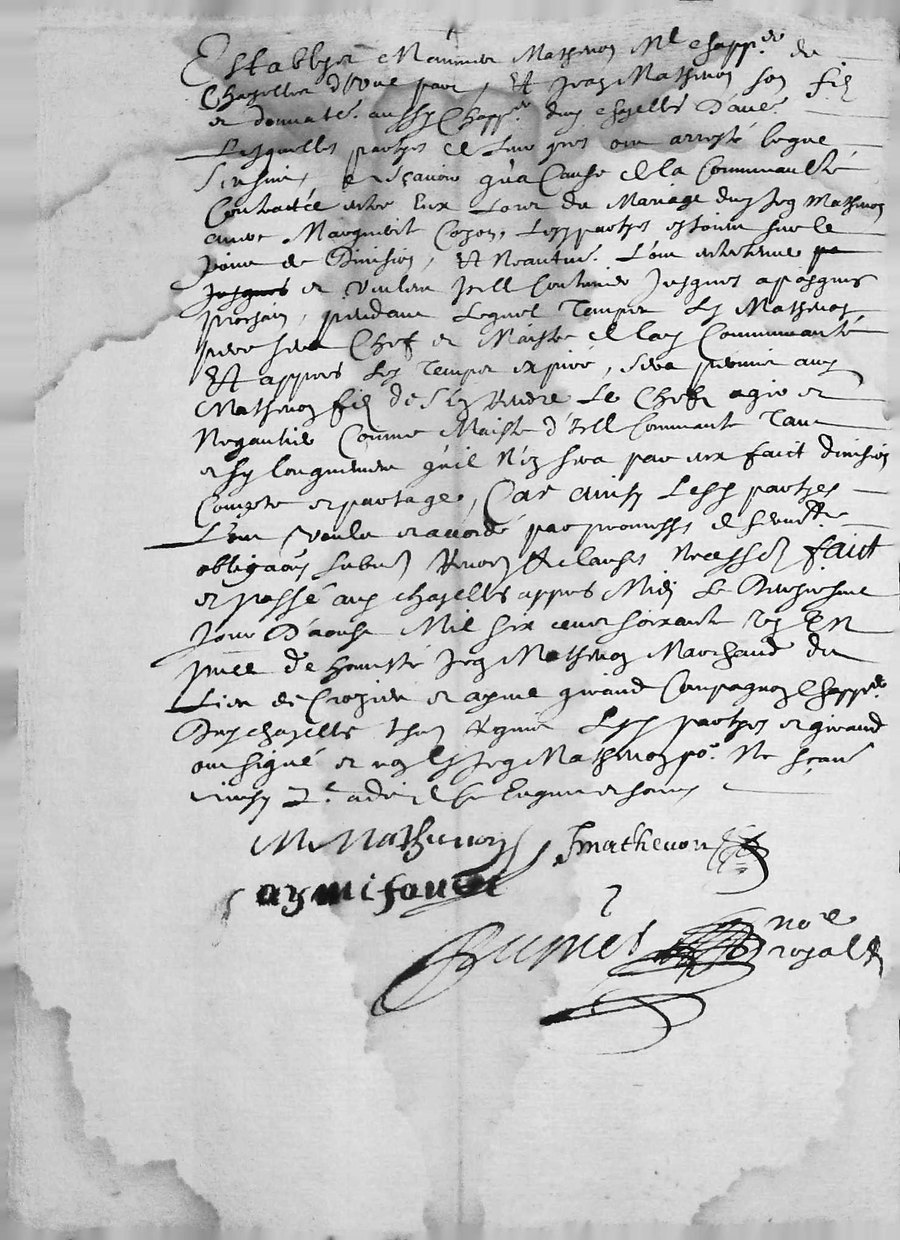 Establys Mathevon Me chapp.er de
Chazelles d'Une part, Et Jean Mathevon son filz
et donnaté. aussy Chapp.er dud chazelles D'aué.
Lesquelles partyes de leur gré ont arresté ce que
s'ensuit, a sçavoir qu'a Cause de la Communaulté
Contractée entre Eux Lors du Mariage dud Jeg Mathevon
avec Marguerit Cozon, Lesd partyes estoient sur le
point de Division, Et Neantm. L'ont entretenue
jusques et Veulent Icelle Continuer Jusques a pasques
prochain, pendant Lequel Temps Led Mathevon
pere sera Chef et Maistre de lad Communauté
Et appres Led Temps expiré, sera permis aud
Mathevon filz de s'en Rendre Le Cheff agir et
Negautier Comme Maistre d'Icelle Communauté Tant
et sy longuement qu'il N'en sera par eux faict division
Compte et partage, Car ainsy Lesd partyes
L'ont Voulu et accordé par promesses et serm.t
obliga'ons submis Renon Et clauses Necess.es faict
et passé aud chazelles appres Midi Le
Jour D'aoust Mil six cens soixante EN
p'nce de honnesté Jeg Mathevon Marchand du
Lieu de Crozier et ayme giraud Compagnon Chapp.er
Dud chazelles Requis Lesd partyes et giraud
ont signé et non led Jeg Mathevon po.r Ne sçavoir
ainsy enquis et somme
M Mathevon Jmathevon
aymé
no.re
royal